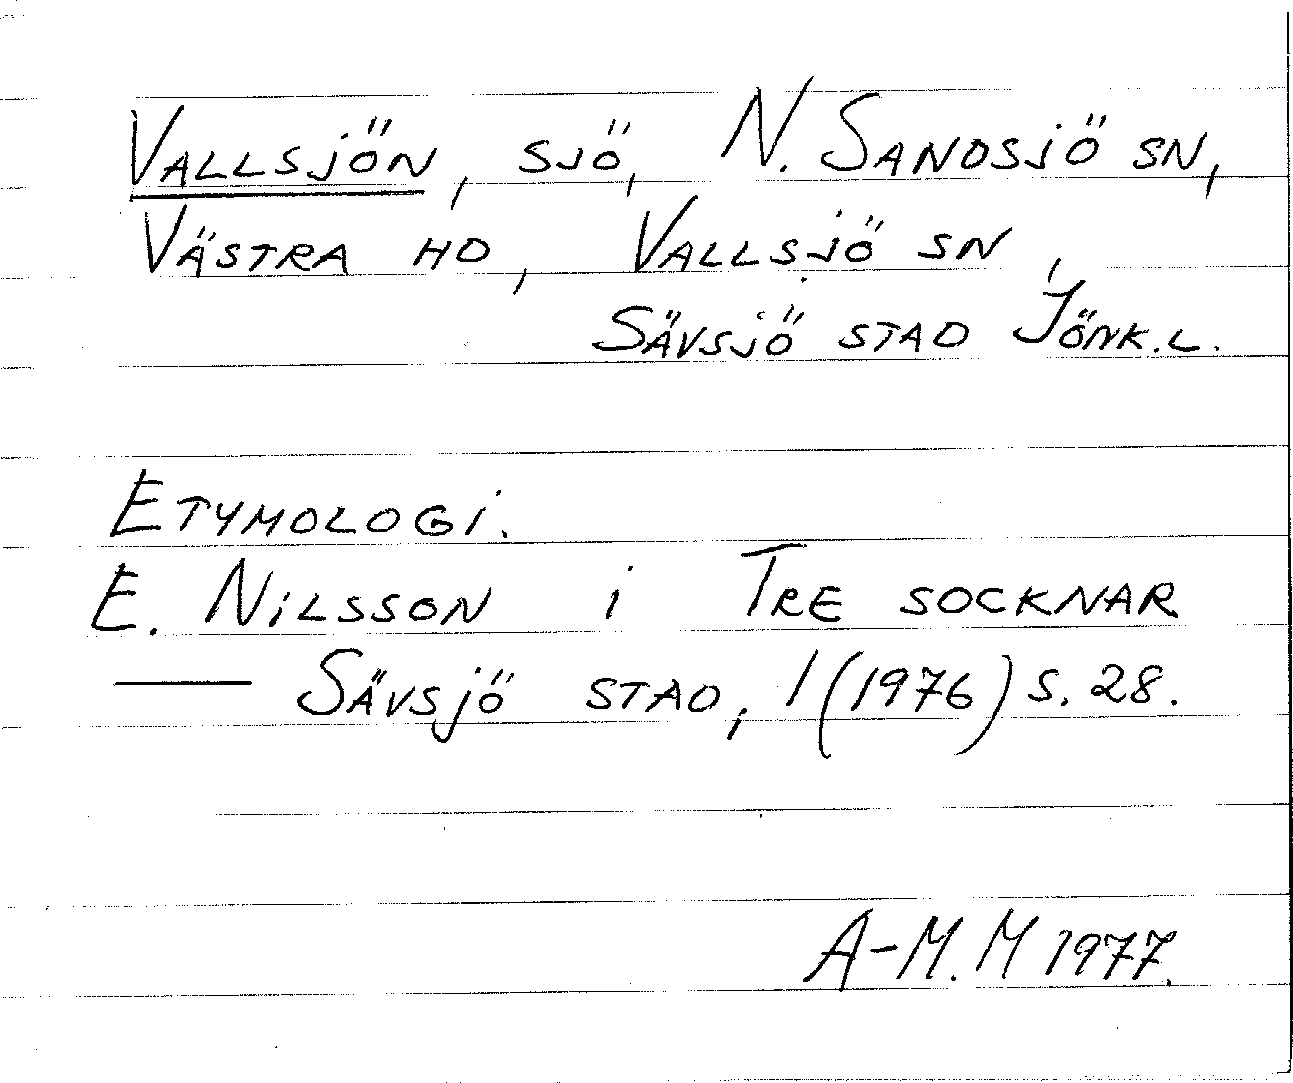 VALLSJÖN, SJÖ, N. SANDSJÖ SN,
VÄSTRA HD, VALLSJÖ SN,
SÄVSJÖ STAD JÖNK.L.
ETYMOLOGI.
E. NILSSON i TRE SOCKNAR
— SÄVSJÖ STAD, 1 (1976) S. 28.
A-M. M 1977.